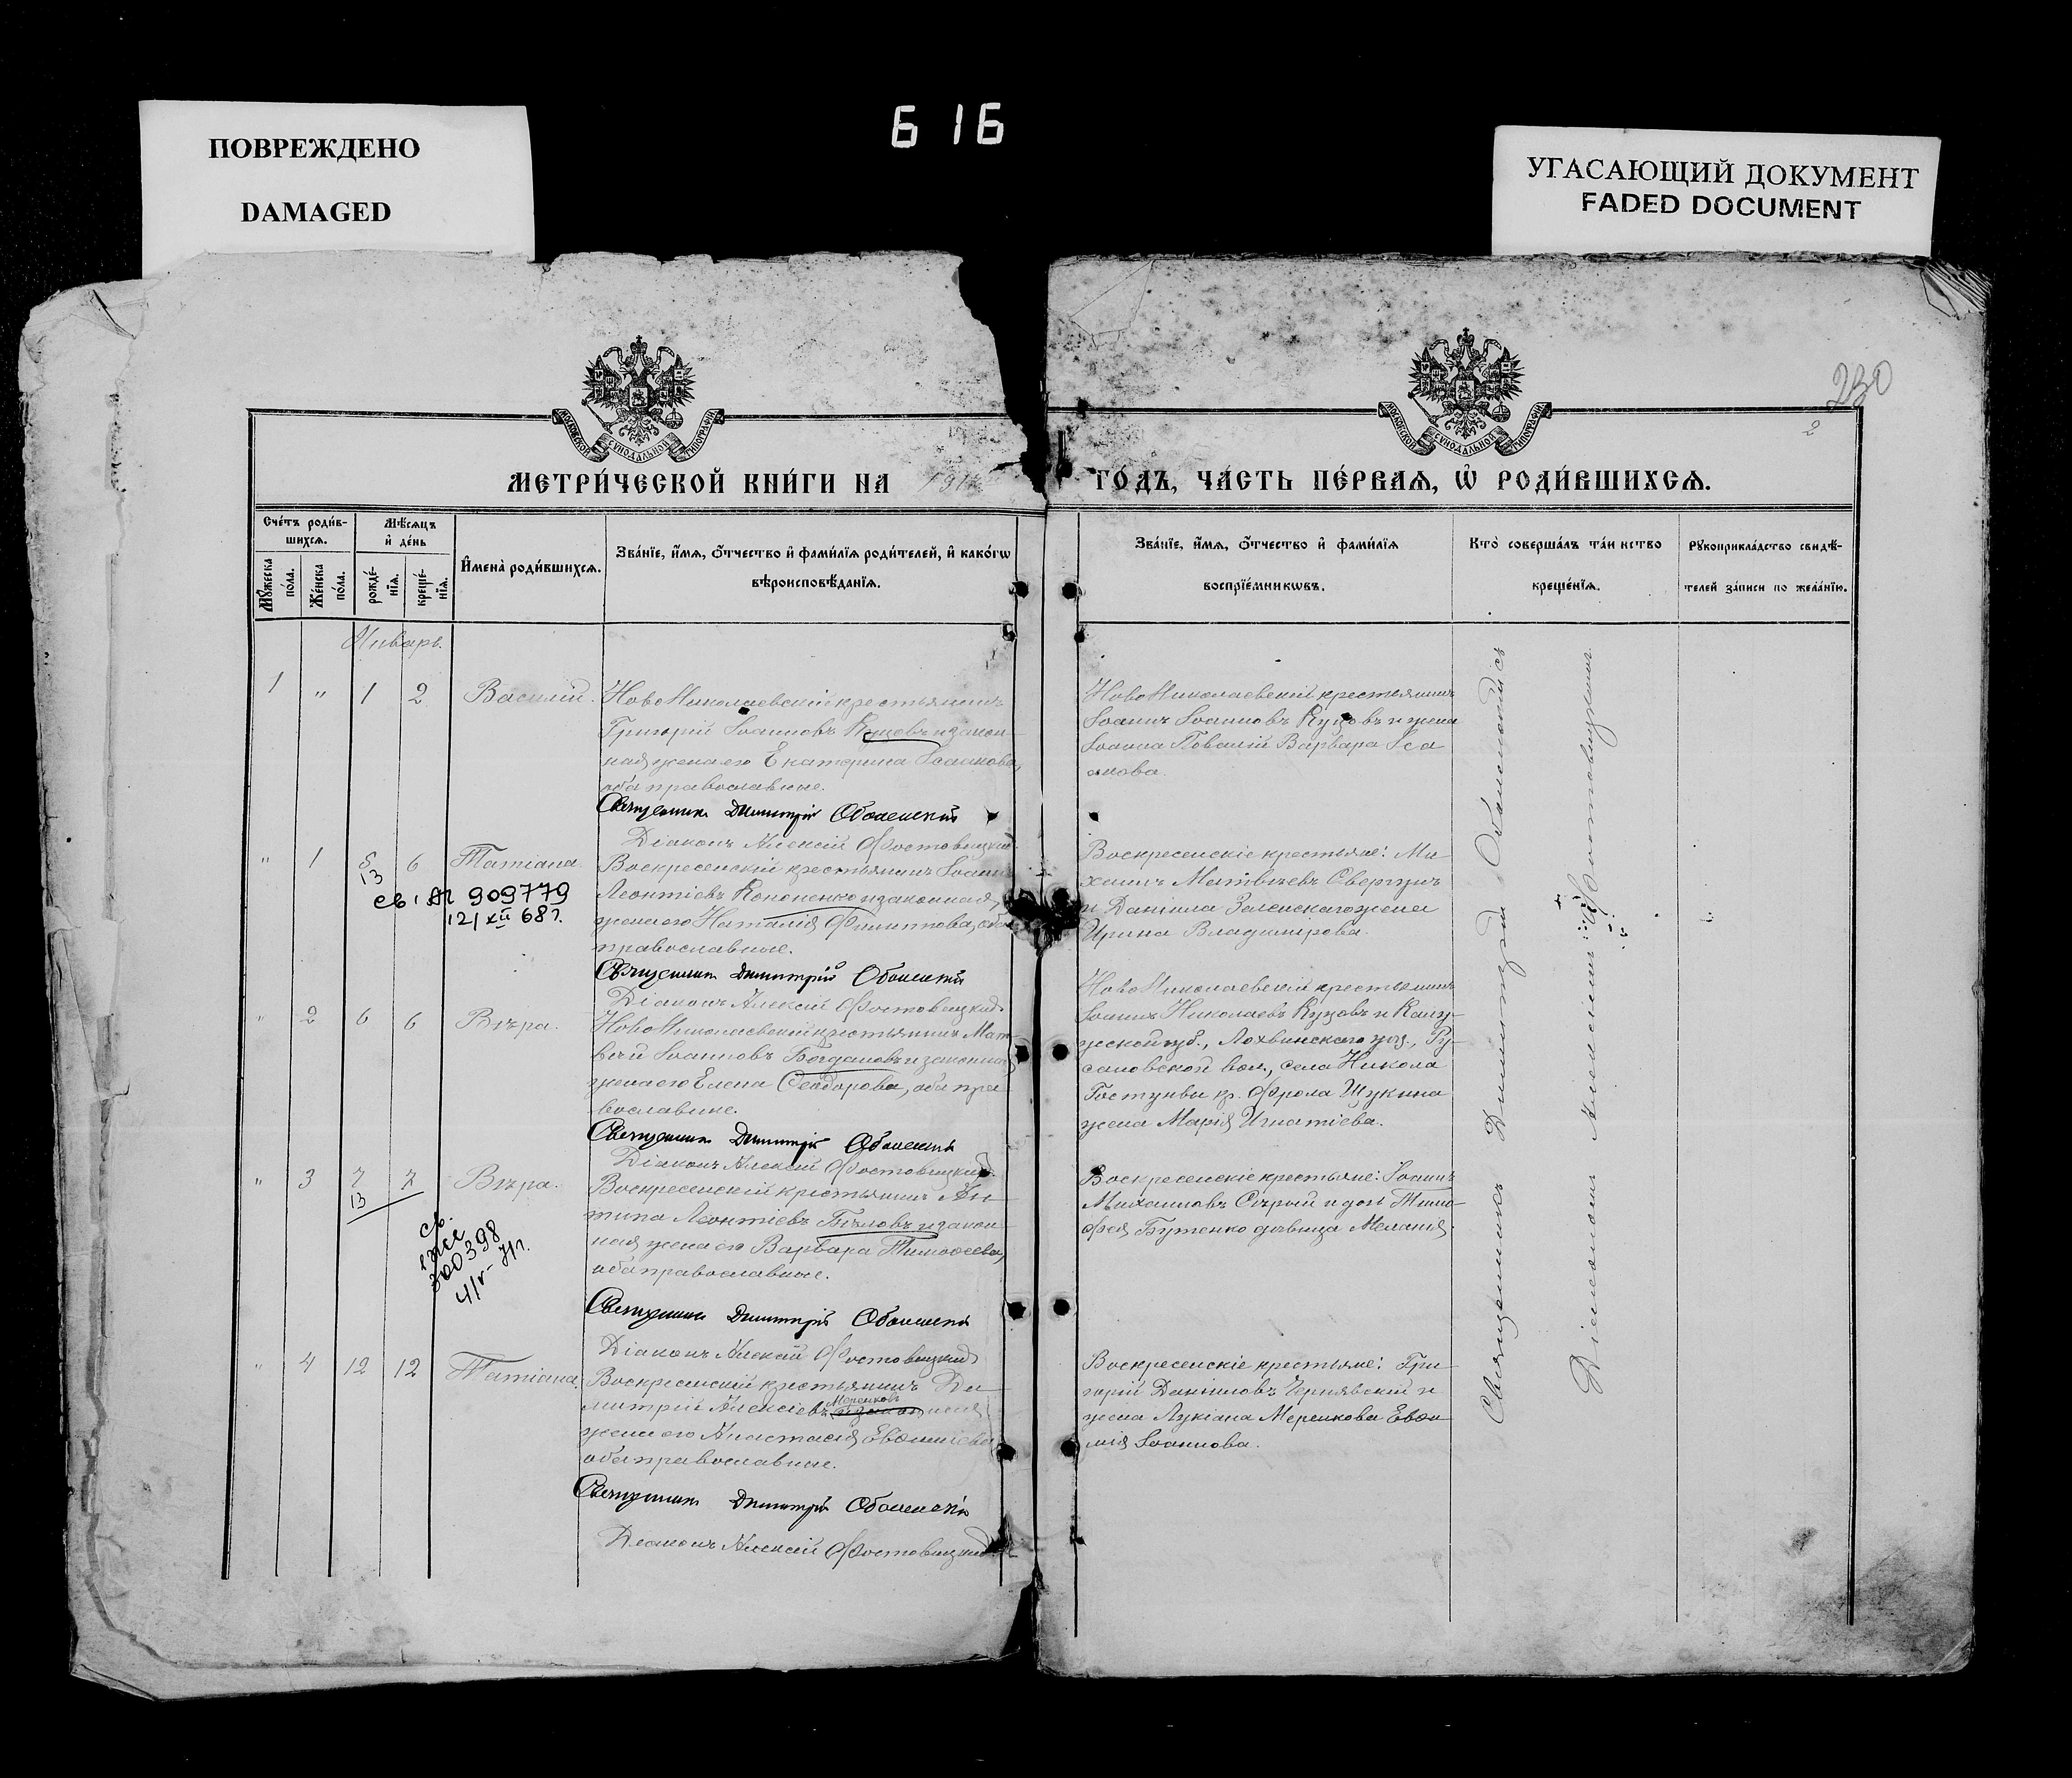 ПОВРЕЖДЕНО
DAMAGED
616
УГАСАЮЩИЙ ДОКУМЕНТ
FADED DOCUMENT
230
2
МОСКОВСКОЙ СѴНОДАЛЬНОЙ ТИПОГРАФІИ
МОСКОВСКОЙ СѴНОДАЛЬНОЙ ТИПОГРАФІИ
МЕТРИ́ЧЕСКОЙ КНИ́ГИ НА 191
ГО́ДЪ, ЧА́СТЬ ПЕ́РВАѦ, Ѽ РОДИ́ВШИХСѦ.
Сче́тъ роди́в-
шихсѧ.
Мꙋ́жеска по́ла.
Же́нска по́ла.
Мѣ́сѧцъ
и҆ де́нь
рожде́-нїѧ.
креще́-нїѧ.
И҆мена̀ роди́вшихсѧ.
Зва́нїе, и҆́мѧ, ѻ҆́тчество и҆ фами́лїѧ роди́телей, и҆ како́гѡ
вѣроисповѣ́данїѧ.
Зва́нїе, и҆́мѧ, ѻ҆́тчество и҆ фами́лїѧ
воспрїе́мникѡвъ.
Кто̀ соверша́лъ та́инство
креще́нїѧ.
Рꙋкоприкла́дство свидѣ́-
телей за́писи по жела́нїю.
Январь.
1 " 1 2 Василій.
Ново Николаевскій крестьянинъ
Григорій Іоанновъ Куцовъ и закон-
ная жена его Екатерина Исаакова,
оба православные.
Священникъ Димитрій Оболенскій
Діаконъ Алексій Фостовицкій
Ново Николаевскій крестьянинъ
Іоаннъ Іоанновъ Куцовъ и жена
Іоанна Варвара Иса
акова.
" 1 5 6 Татіана.
13
св. 909779
12/XII 68 г.
Воскресенскій крестьянинъ Іоаннъ
Леонтіевъ Кононенко и законная
жена его Наталія Филиппова, оба
православные.
Священникъ Димитрій Оболенскій
Діаконъ Алексій Фостовицкій
Воскресенскіе крестьяне: Ми-
хаилъ Матвѣевъ
и Даніила Заленскаго жена
Ирина Владимірова.
" 2 6 6 Вѣра.
Ново Николаевскій крестьянинъ Мат-
вѣй Іоанновъ Богдановъ и законная
жена его Елена Ѳеодорова, оба пра-
вославные.
Священникъ Димитрій Оболенскій
Діаконъ Алексій Фостовицкій
Ново Николаевскій крестьянинъ
Іоаннъ Николаевъ Куцовъ и Калу-
жской губ., Лихвинскаго уѣз., Ру-
сановской вол., села Никола
Гостунвы кр. Фрола Щукина
жена Марія Игнатіева.
" 3 7 7 Вѣра.
13
св.
300398
4/V-71г.
Воскресенскій крестьянинъ Ан-
типа Леонтіевъ Бѣловъ и закон-
ная жена его Варвара Тимоѳеева,
оба православные.
Священникъ Димитрій Оболенскій
Діаконъ Алексій Фостовицкій
Воскресенскіе крестьяне: Іоаннъ
Михаиловъ Сѣрый и дочь Тимо-
фея Бутенко дѣвица Меланія.
" 4 12 12 Татіана.
Воскресенскій крестьянинъ Ди-
Меренковъ
митрій Алексіевъ и законная
жена его Анастасія Евѳиміева
оба православные.
Священникъ Димитрій Оболенскій
Діаконъ Алексій Фостовицкій
Воскресенскіе крестьяне: Гри-
горій Данииловъ Чернявскій и
жена Лукіана Меренкова Евѳи
мія Іоаннова.
Священникъ Димитрій Оболенскій
Діаконъ Алексій Фостовицкій